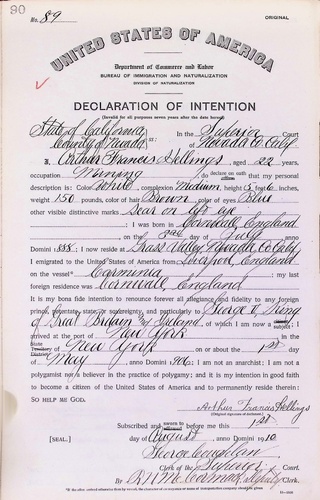 90
No. 89
ORIGINAL
UNITED STATES OF AMERICA
Department of Commerce and Labor
BUREAU OF IMMIGRATION AND NATURALIZATION
DIVISION OF NATURALIZATION
DECLARATION OF INTENTION
(Invalid for all purposes seven years after the date hereof)
State of California, In the Superior Court
County of Nevada ss: of Nevada Co. Calif.
I, Arthur Francis Hellings, aged 22 years,
occupation Mining, do declare on oath that my personal
description is: Color White, complexion Medium, height 5 feet 6 inches,
weight 150 pounds, color of hair Brown, color of eyes Blue
other visible distinctive marks Scar on left eye
I was born in Cornwall, England
on the day of July, anno
Domini 1888; I now reside at Grass Valley, Nevada Co. Calif.
I emigrated to the United States of America from Liverpool, England
on the vessel Carminia; my last
foreign residence was Cornwall, England
It is my bona fide intention to renounce forever all allegiance and fidelity to any foreign
prince, potentate, state, or sovereignty, and particularly to George V, King
of Great Britain and Ireland, of which I am now a subject; I
arrived at the port of New York, in the
State Territory District of New York on or about the 1st day
of May, anno Domini 1906; I am not an anarchist; I am not a
polygamist nor a believer in the practice of polygamy; and it is my intention in good faith
to become a citizen of the United States of America and to permanently reside therein:
SO HELP ME GOD.
Arthur Francis Hellings
(Original signature of declarant.)
Subscribed and sworn to before me this 1st
[SEAL.] day of August, anno Domini 1910
George Coughlan
Clerk of the Superior Court.
By R H McCormack, deputy Clerk.